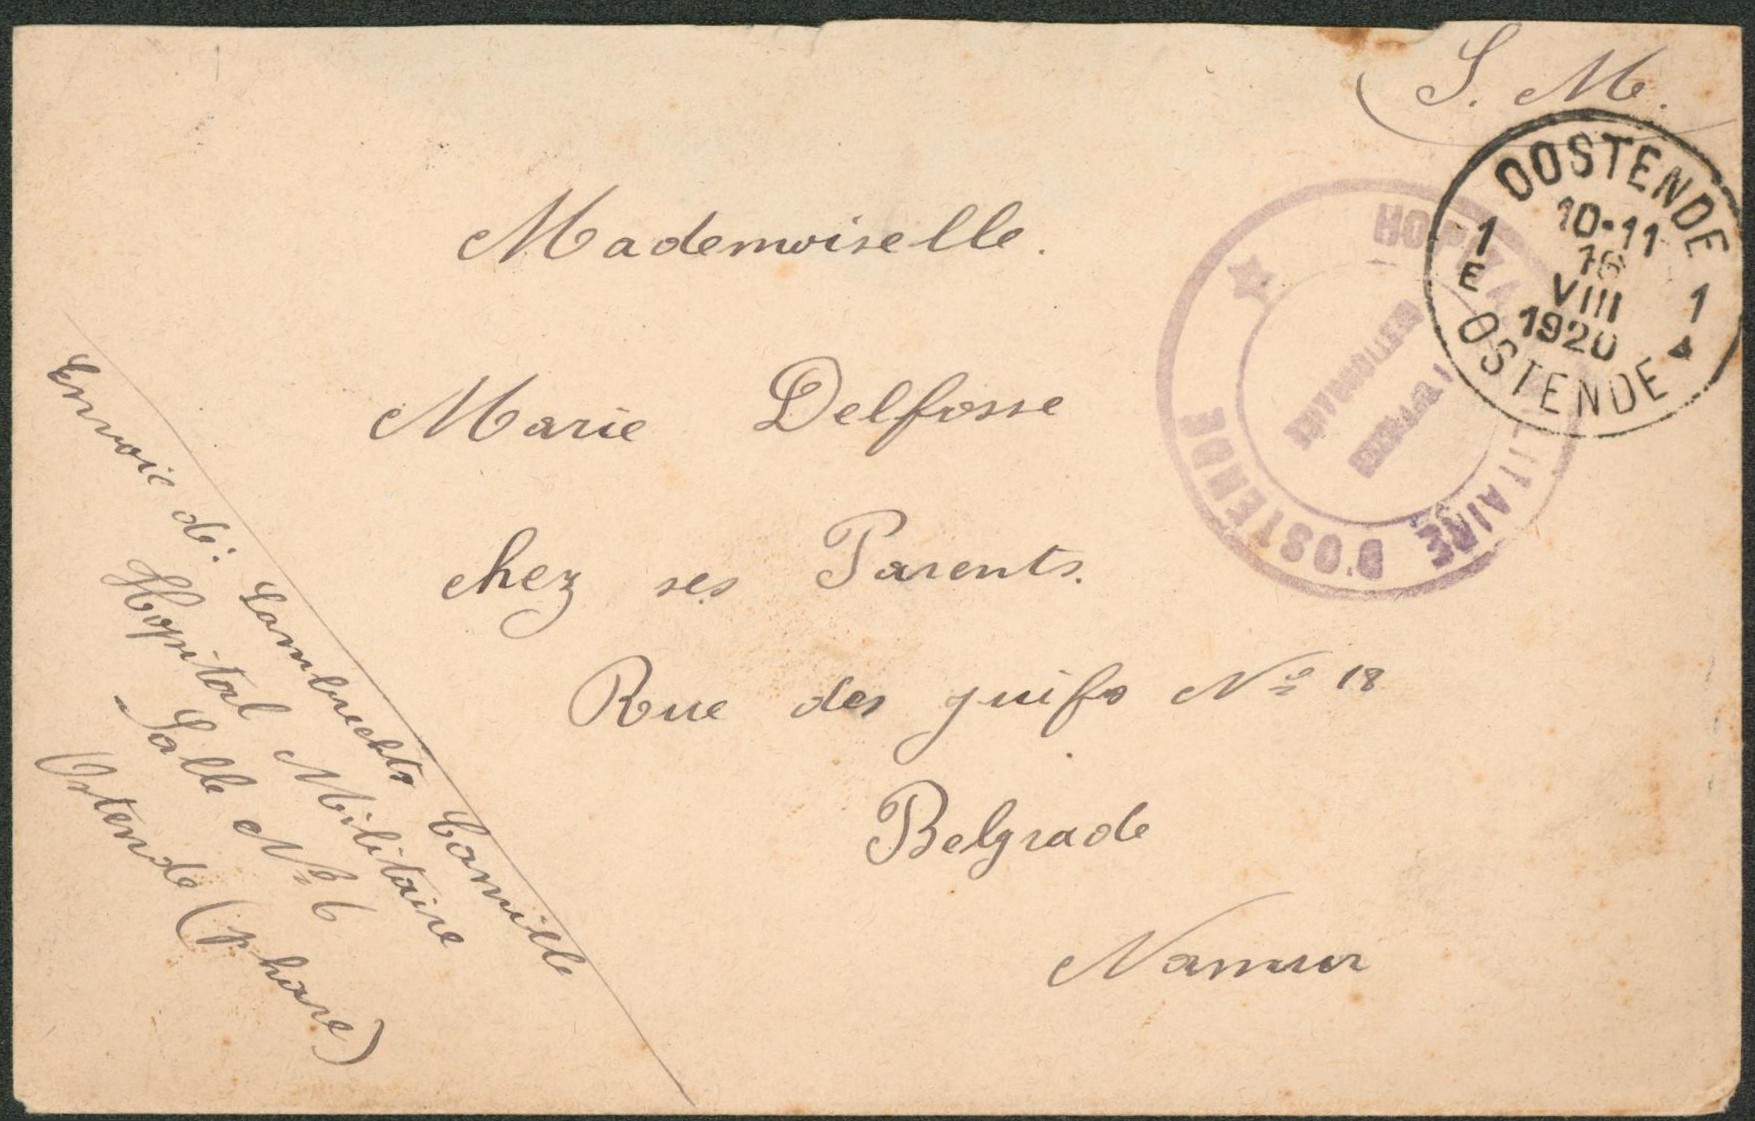 S. M.
OOSTENDE
1 1
10-11
E
VIII
1920
OSTENDE
HOPITAL MILITAIRE D'OSTENDE
Mademoiselle.
Marie Delfosse
chez ses Parents.
Rue des juifs Nº 18
Belgrade
Namur
Envoie de: Lambrechts Camille
Hopital Militaire
Salle Nº 6
Ostende (phare)